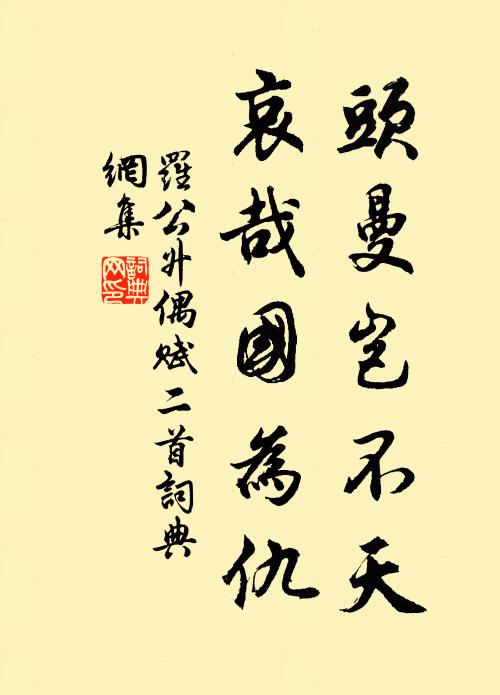 頭曼豈不天
哀哉國為仇
羅公升偶賦二首詞典
網集
詞典網印